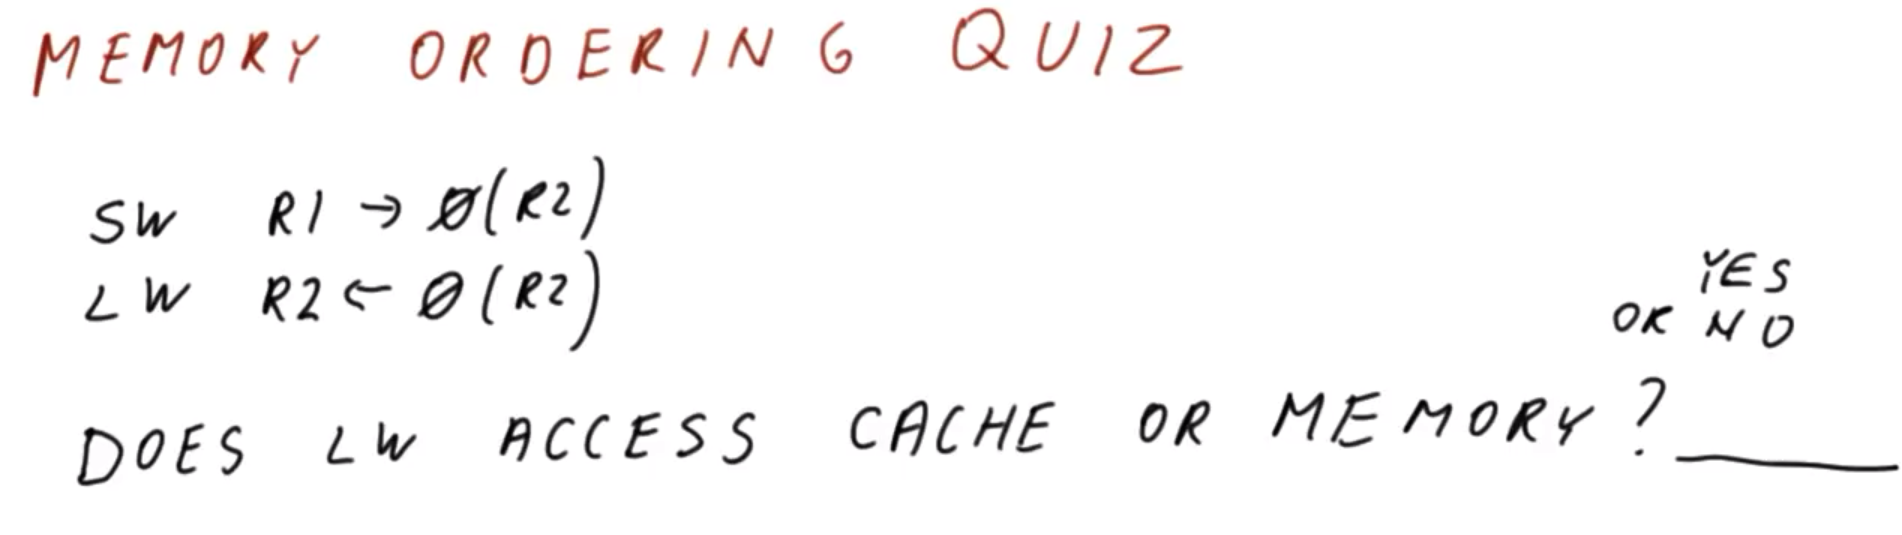 MEMORY ORDERING QUIZ
SW R1 → 0(R2)
LW R2 ← 0(R2)
YES
OR NO
DOES LW ACCESS CACHE OR MEMORY?